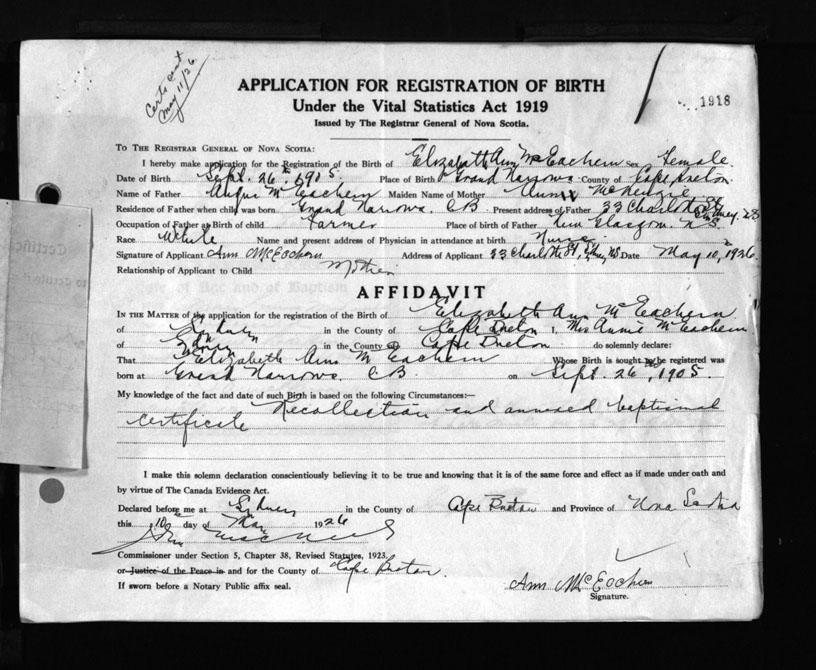 Certs sent
May 11/26
1918
APPLICATION FOR REGISTRATION OF BIRTH
Under the Vital Statistics Act 1919
Issued by The Registrar General of Nova Scotia.
TO THE REGISTRAR GENERAL OF NOVA SCOTIA:
I hereby make application for the Registration of the Birth of Elizabeth Ann McEachern sex Female.
Date of Birth Sept. 26th, 1905. Place of Birth Grand Narrows County of Cape Breton
Name of Father Angus McEachern Maiden Name of Mother Ann McKenzie
Residence of Father when child was born Grand Narrows. C.B. Present address of Father 33 Charlotte St Sydney, NS
Occupation of Father at Birth of child Farmer Place of birth of Father New Glasgow. N.S.
Race White Name and present address of Physician in attendance at birth Nurse
Signature of Applicant Ann McEachern Address of Applicant 33 Charlotte St, Sydney, NS Date May 10, 1926.
Relationship of Applicant to Child Mother
AFFIDAVIT
IN THE MATTER of the application for the registration of the Birth of Elizabeth Ann McEachern
of Sydney in the County of Cape Breton I, Mrs Annie McEachern
of Sydney in the County of Cape Breton do solemnly declare:
That Elizabeth Ann McEachern Whose Birth is sought to be registered was
born at Grand Narrows. C.B. on Sept. 26th, 1905.
My knowledge of the fact and date of such Birth is based on the following Circumstances:—
Recollection and annexed baptismal
certificate
I make this solemn declaration conscientiously believing it to be true and knowing that it is of the same force and effect as if made under oath and
by virtue of The Canada Evidence Act.
Declared before me at Sydney in the County of Cape Breton and Province of Nova Scotia
this 10th day of May 1926
Commissioner under Section 5, Chapter 38, Revised Statutes, 1923.
or Justice of the Peace in and for the County of Cape Breton.
If sworn before a Notary Public affix seal.
Ann McEachern
Signature.